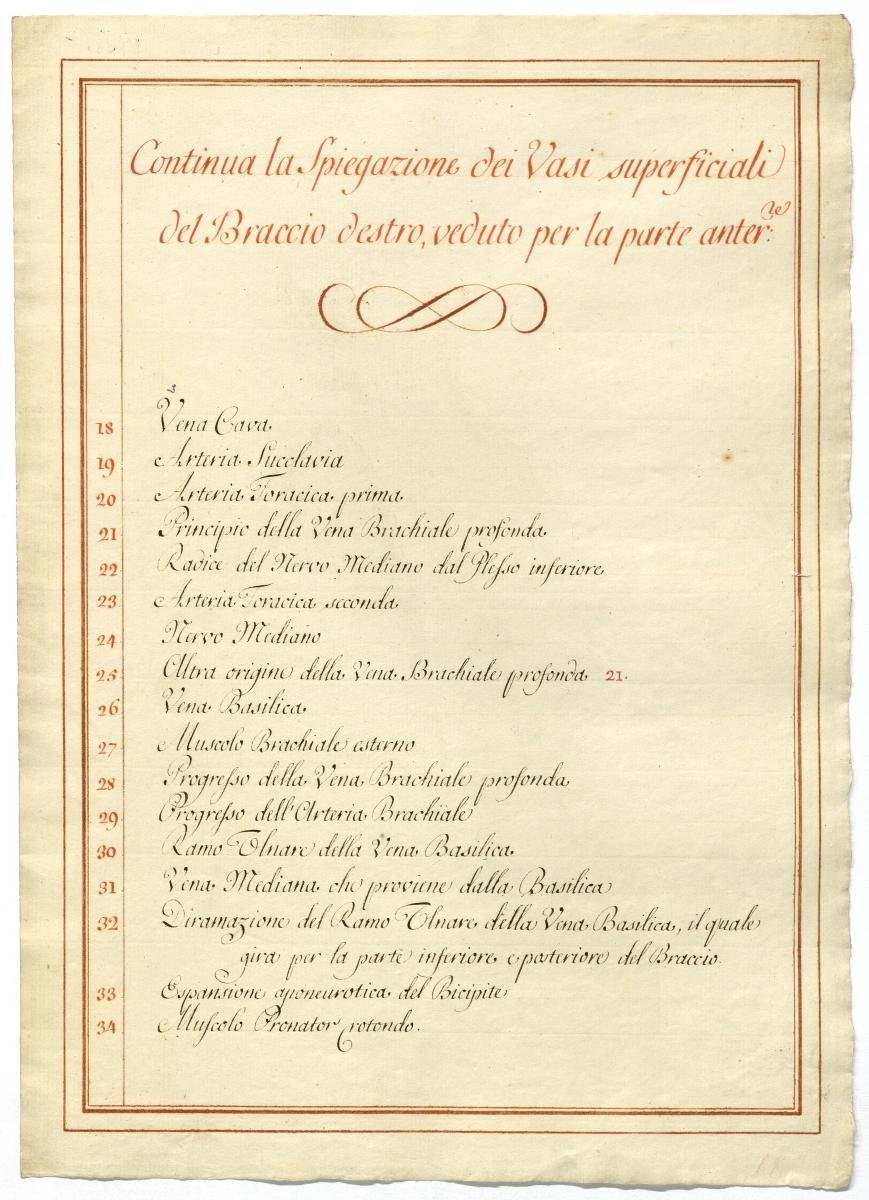 Continua la Spiegazione dei Vasi superficiali
del Braccio destro, veduto per la parte anter:re
18 Vena Cava
19 Arteria Succlavia
20 Arteria Toracica prima
21 Principio della Vena Brachiale profonda
22 Radice del Nervo Mediano dal Plesso inferiore
23 Arteria Toracica seconda
24 Nervo Mediano
25 Altra origine della Vena Brachiale profonda 21.
26 Vena Basilica
27 Muscolo Brachiale esterno
28 Progresso della Vena Brachiale profonda
29 Progresso dell'Arteria Brachiale
30 Ramo Ulnare della Vena Basilica
31 Vena Mediana che proviene dalla Basilica
32 Diramazione del Ramo Ulnare della Vena Basilica, il quale
gira per la parte inferiore e posteriore del Braccio.
33 Espansione aponeurotica del Bicipite
34 Muscolo Pronator rotondo.